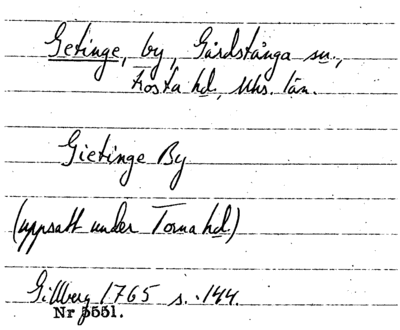 Getinge, by, Gårdstånga sn,
Frosta hd, Mhs. län.
Gietinge By
(uppsatt under Torna hd)
Gillberg 1765 s. 144.
Nr 5551.